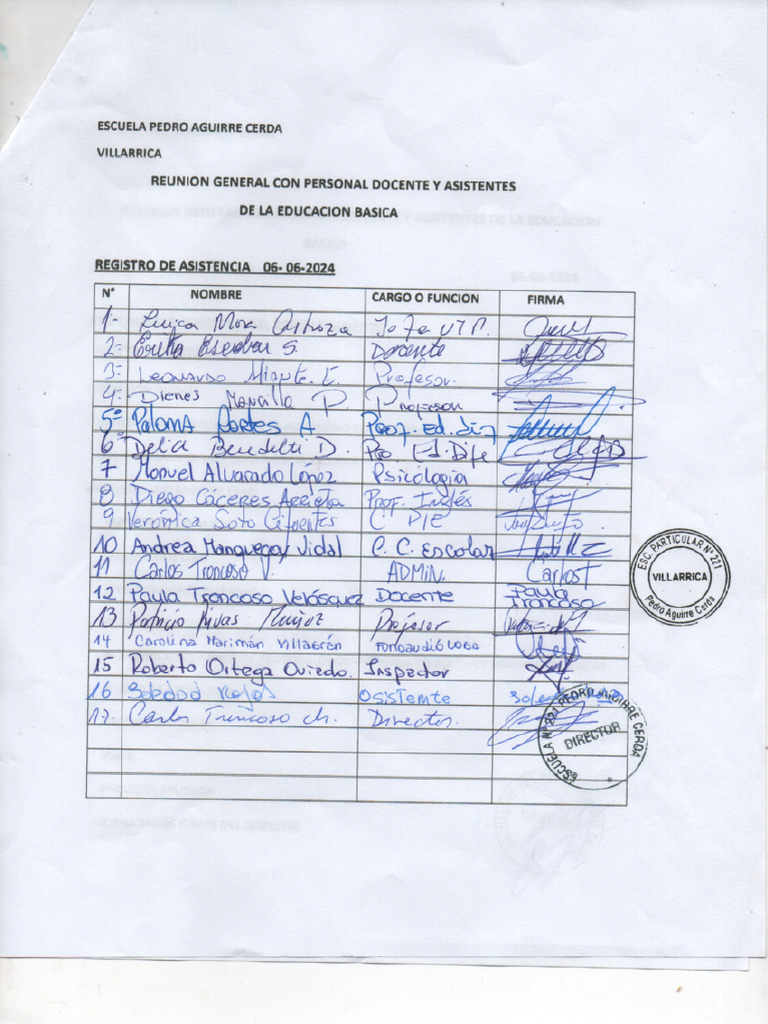 ESCUELA PEDRO AGUIRRE CERDA
VILLARRICA
REUNION GENERAL CON PERSONAL DOCENTE Y ASISTENTES
DE LA EDUCACION BASICA
REGISTRO DE ASISTENCIA 06- 06-2024
N° NOMBRE CARGO O FUNCION FIRMA
1- Mora Jefa UTP.
2- Erika Escobar S. Docente
3- Leonardo E. Profesor.
4- Mancilla P. Profesor
5° Paloma Cortes A Prof. Ed. Dif
6° Delia Benedetti D. Pro Ed. Dife
7 Manuel Alvarado López Psicología
8 Diego Cáceres Arrieta Prof. Inglés
9 Verónica Soto Cifuentes C PIE
10 Andrea Manquepay Vidal C. C. Escolar
11 Carlos Troncoso V. ADMIN. Carlos T
12 Paula Troncoso Velásquez Docente Paula Troncoso
13 Patricio Rivas Muñoz Profesor
14 Carolina Marimán Villagrán Fonoaudióloga
15 Roberto Ortega Oviedo. Inspector
16 Soledad Rojas Asistente
17- Carlos Troncoso Ch. Director.
ESC. PARTICULAR N° 221
VILLARRICA
Pedro Aguirre Cerda
ESCUELA N° 221 PEDRO AGUIRRE CERDA
DIRECTOR